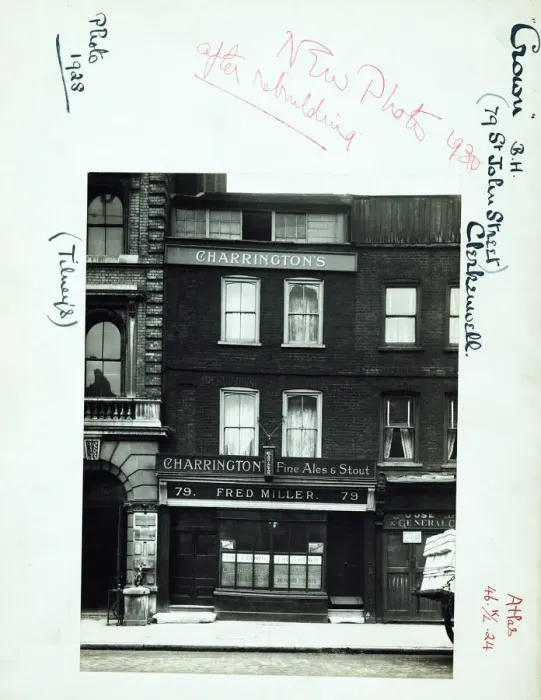 Photo
1928
NEW Photo 1930
after rebuilding
"Crown" B.H.
(79 St John Street)
Clerkenwell.
(Tilney's)
CHARRINGTON'S
CHARRINGTON'S Fine Ales & Stout
79. FRED MILLER. 79
& GENERAL
Atlas
46. K/L. 24